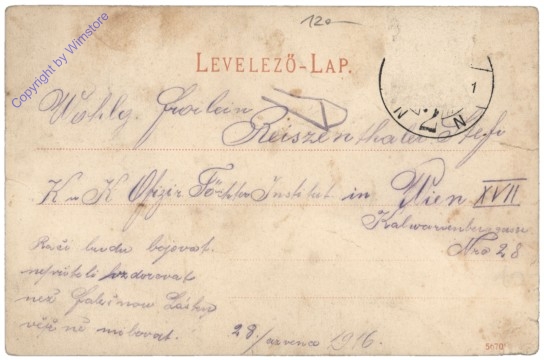 120-
Copyright by Wimstore
LEVELEZŐ-LAP.
1
Wohlg. Fräulein
Reiszenthaler Stefi
K u K Ofizir Töchter Institut in Wien XVII
Kalvarienberggasse
Nro 28
Rači budu bojovat
nepřáteli vzdorovat
než falešnou Lásku
věčně milovat.
28/ července 1916
5670